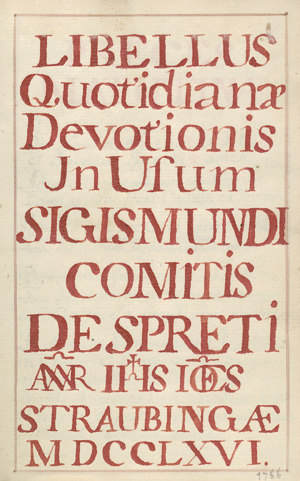 LIBELLUS
Quotidianæ
Devotionis
Jn Uſum
SIGISMUNDI
COMITIS
DE SPRETI
STRAUBINGÆ
MDCCLXVI.
1766